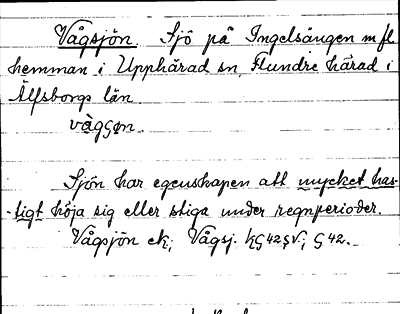 Vågsjön. Sjö på Ingelsängen m fl
hemman i Upphärad sn, Flundre härad i
Älfsborgs län.
vågsøn.
Sjön har egenskapen att mycket has-
-tigt höja sig eller stiga under regnperioder.
Vågsjön ek; Vågsj. hG42SV; G42.